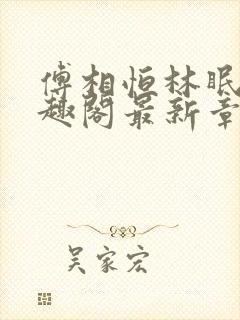 傅相恒林眠
趣阁最新章
吴家宏